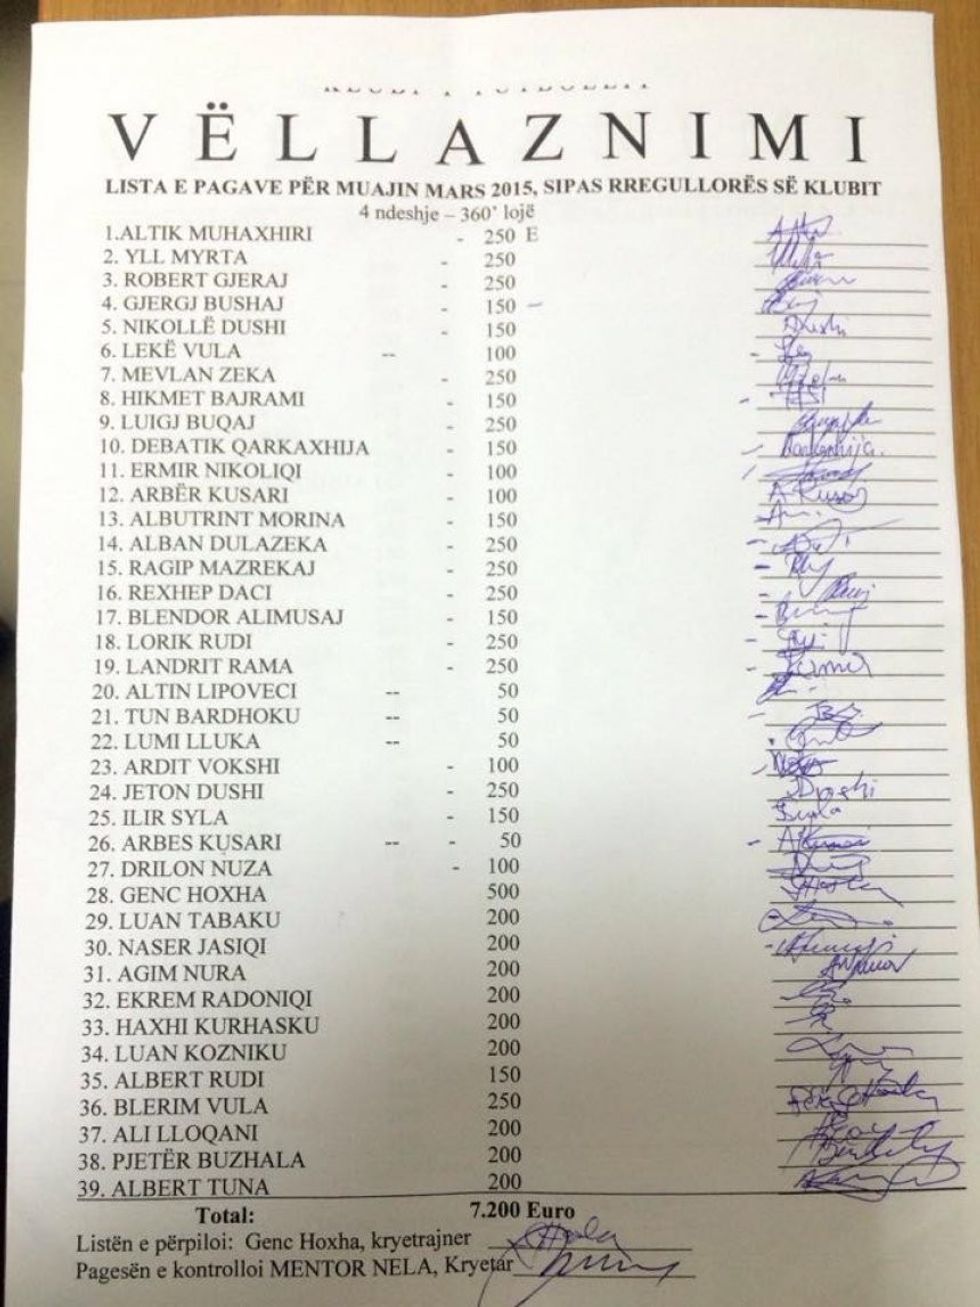 VËLLAZNIMI
LISTA E PAGAVE PËR MUAJIN MARS 2015, SIPAS RREGULLORËS SË KLUBIT
4 ndeshje – 360' lojë
1.ALTIK MUHAXHIRI - 250 E
2. YLL MYRTA - 250
3. ROBERT GJERAJ - 250
4. GJERGJ BUSHAJ - 150 –
5. NIKOLLË DUSHI - 150 Dushi
6. LEKË VULA -- 100
7. MEVLAN ZEKA - 250
8. HIKMET BAJRAMI - 150
9. LUIGJ BUQAJ - 250
10. DEBATIK QARKAXHIJA - 150
11. ERMIR NIKOLIQI - 100
12. ARBËR KUSARI - 100 A Kusari
13. ALBUTRINT MORINA - 150
14. ALBAN DULAZEKA - 250
15. RAGIP MAZREKAJ - 250
16. REXHEP DACI - 250
17. BLENDOR ALIMUSAJ - 150
18. LORIK RUDI - 250
19. LANDRIT RAMA - 250
20. ALTIN LIPOVECI -- 50
21. TUN BARDHOKU -- 50
22. LUMI LLUKA -- 50
23. ARDIT VOKSHI - 100
24. JETON DUSHI - 250 Dushi
25. ILIR SYLA - 150 Syla
26. ARBES KUSARI -- - 50
27. DRILON NUZA - 100
28. GENC HOXHA 500
29. LUAN TABAKU 200
30. NASER JASIQI 200
31. AGIM NURA 200
32. EKREM RADONIQI 200
33. HAXHI KURHASKU 200
34. LUAN KOZNIKU 200
35. ALBERT RUDI 150
36. BLERIM VULA 250
37. ALI LLOQANI 200
38. PJETËR BUZHALA 200
39. ALBERT TUNA 200
Total: 7.200 Euro
Listën e përpiloi: Genc Hoxha, kryetrajner
Pagesën e kontrolloi MENTOR NELA, Kryetar